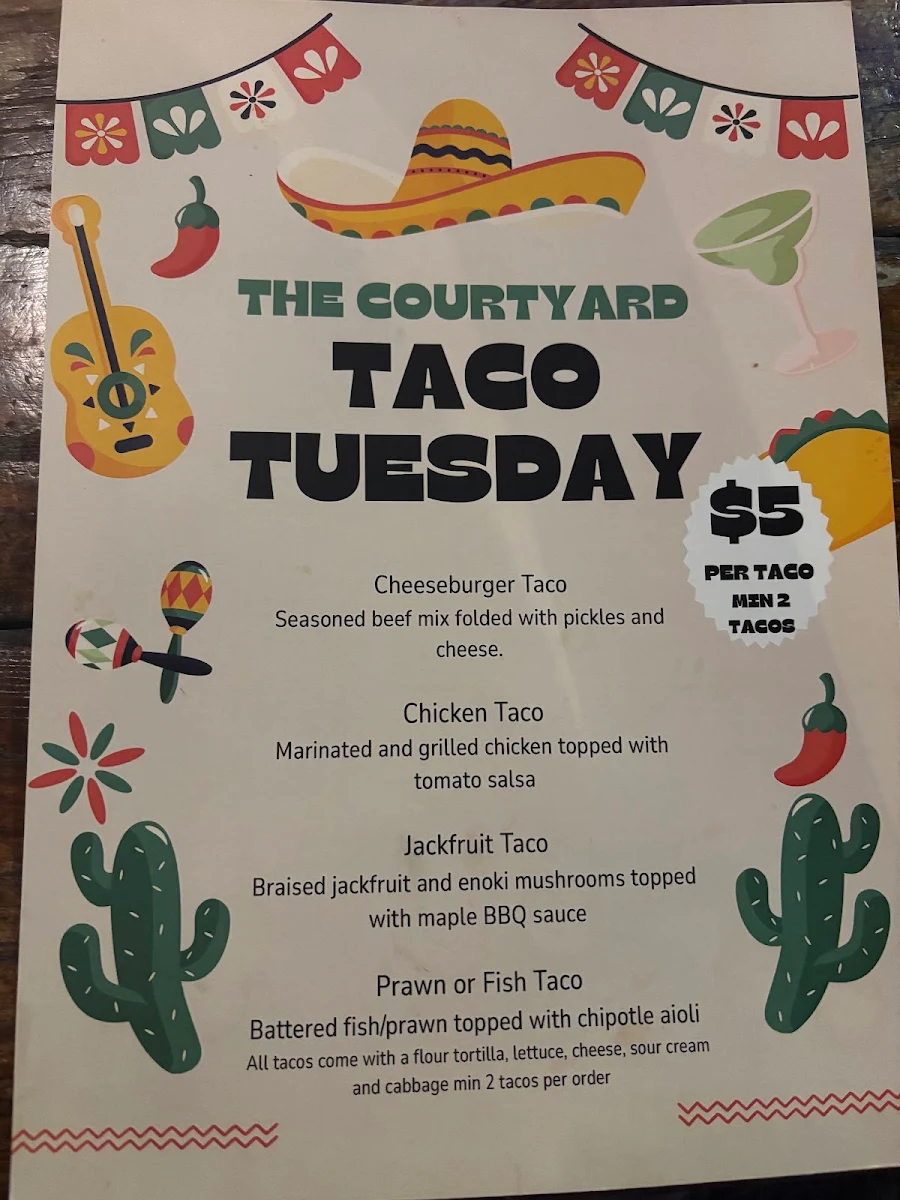 THE COURTYARD
TACO
TUESDAY
$5
PER TACO
MIN 2
TACOS
Cheeseburger Taco
Seasoned beef mix folded with pickles and
cheese.
Chicken Taco
Marinated and grilled chicken topped with
tomato salsa
Jackfruit Taco
Braised jackfruit and enoki mushrooms topped
with maple BBQ sauce
Prawn or Fish Taco
Battered fish/prawn topped with chipotle aioli
All tacos come with a flour tortilla, lettuce, cheese, sour cream
and cabbage min 2 tacos per order